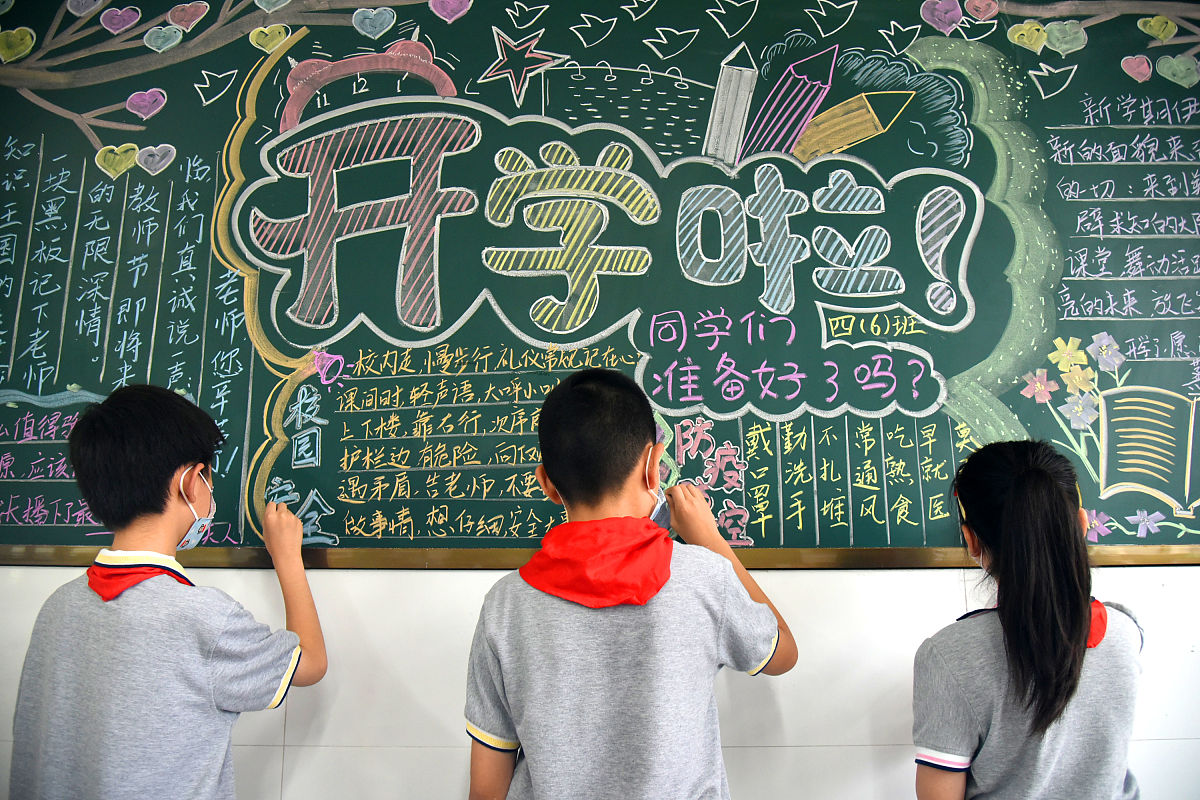 11 12 1
开学啦!
四(6)班
同学们
准备好了吗?
知识王国
一块黑板记下老师
的无限深情。
教师节即将来
临我们真诚说一声
老师您辛苦了!
么值得
原,应该
播下最
人
校园
安全
校内走,慢步行,礼仪常规记在心
课间时,轻声语,大呼小叫
上下楼,靠右行,次序
护栏边,有危险,向下
遇矛盾,告老师,不要
做事情,想仔细,安全
防疫
戴口罩
勤洗手
不扎堆
常通风
吃熟食
早就医
莫
新学期伊
新的面貌来
的一切:来到
求知的
课堂 舞动活
亮的未来 放飞